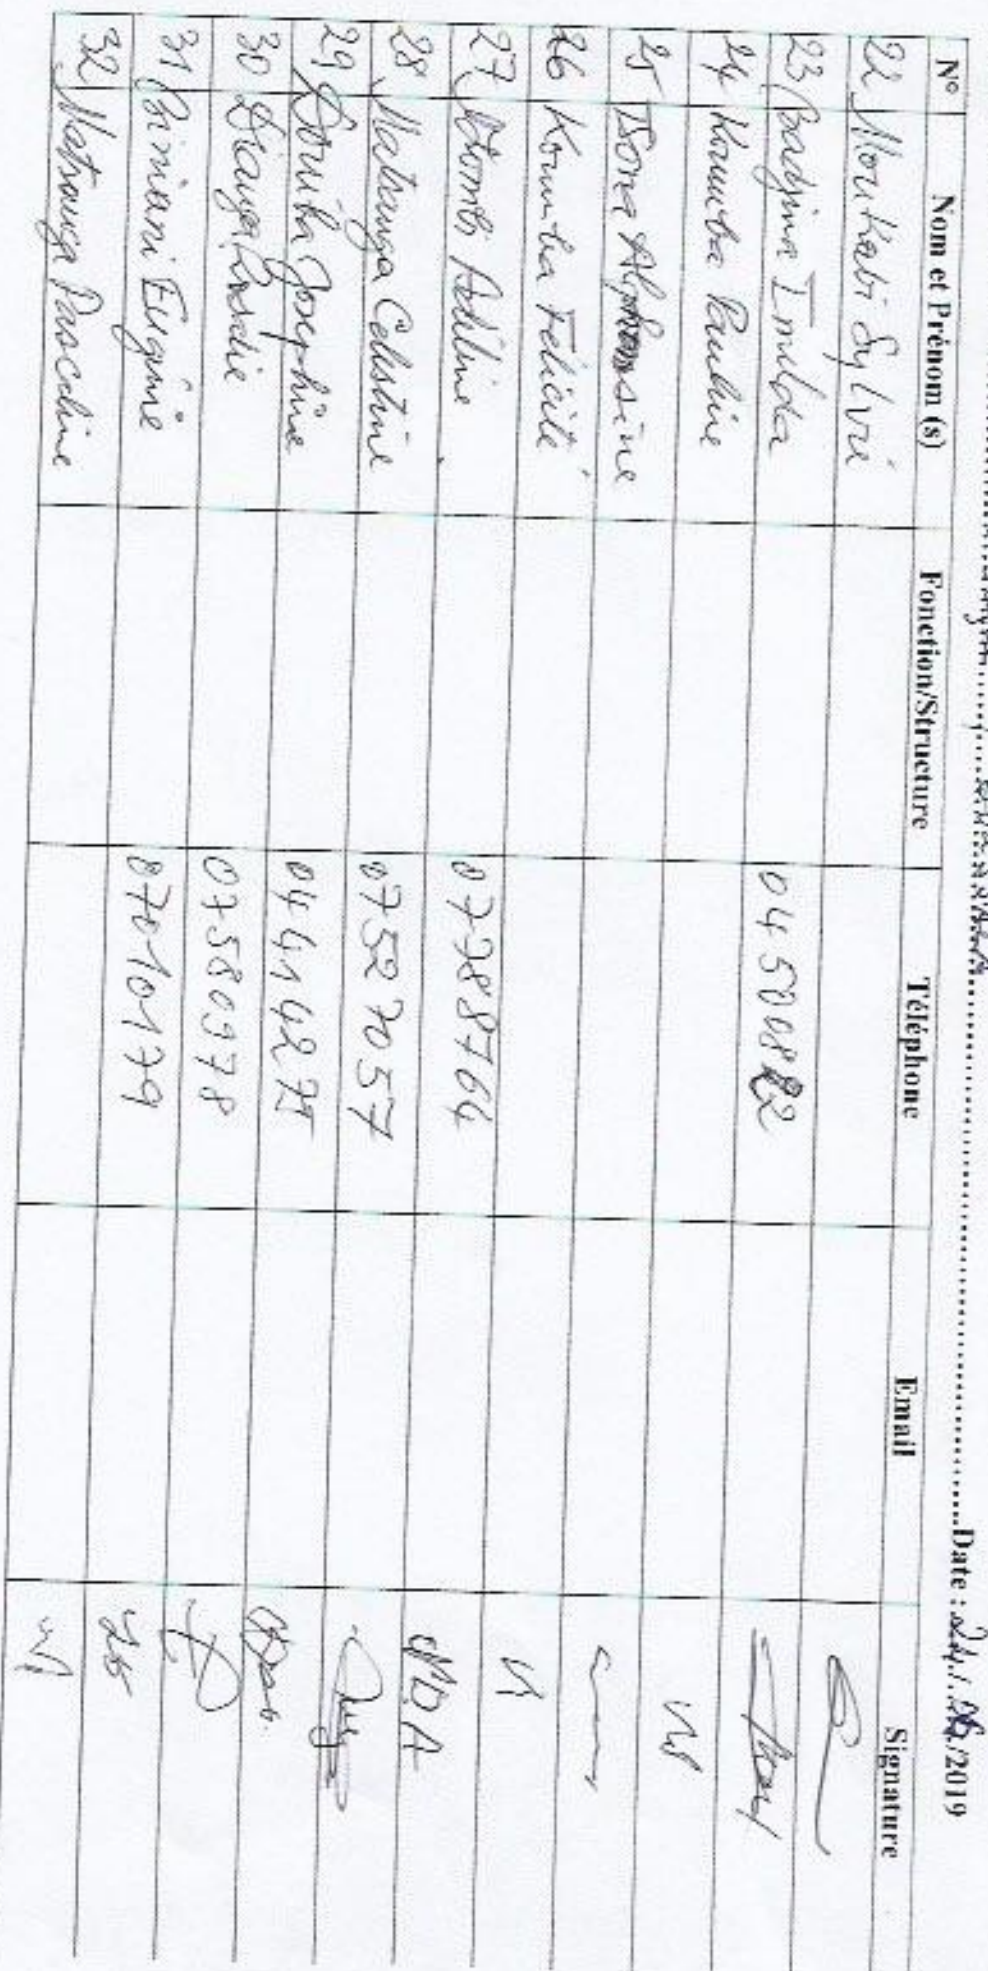 Date : 24/06/2019
N° Nom et Prénom (s) Fonction/Structure Téléphone Email Signature
22 Moukabi Sylvie
23 Badjina Imelda 04500882
24 Koumba Pauline
25 Alphonsine
26 Koumba Félicité
27 Adeline 07788764
28 Matsanga Celestine 07527057
29 Josephine 04414275
30 07580978
31 Biniani Eugénie 07010179
32 Matsanga Pascaline